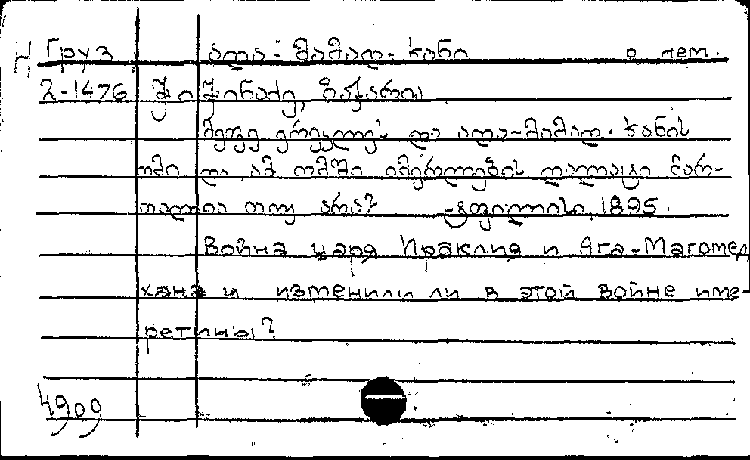 Груз აღა-მამად-ხანი о лет.
2-1476 შიშინაძე, ზაქარია
მეფე ერეკლეს და აღა-მამად-ხანის
ომი და ამ ომში იმერლების ღალატი მარ-
თალია თუ არა? ტფილისი, 1895.
Война царя Ираклия и Ага-Магомед
хана и изменили ли в этой войне име-
ретины?
4909